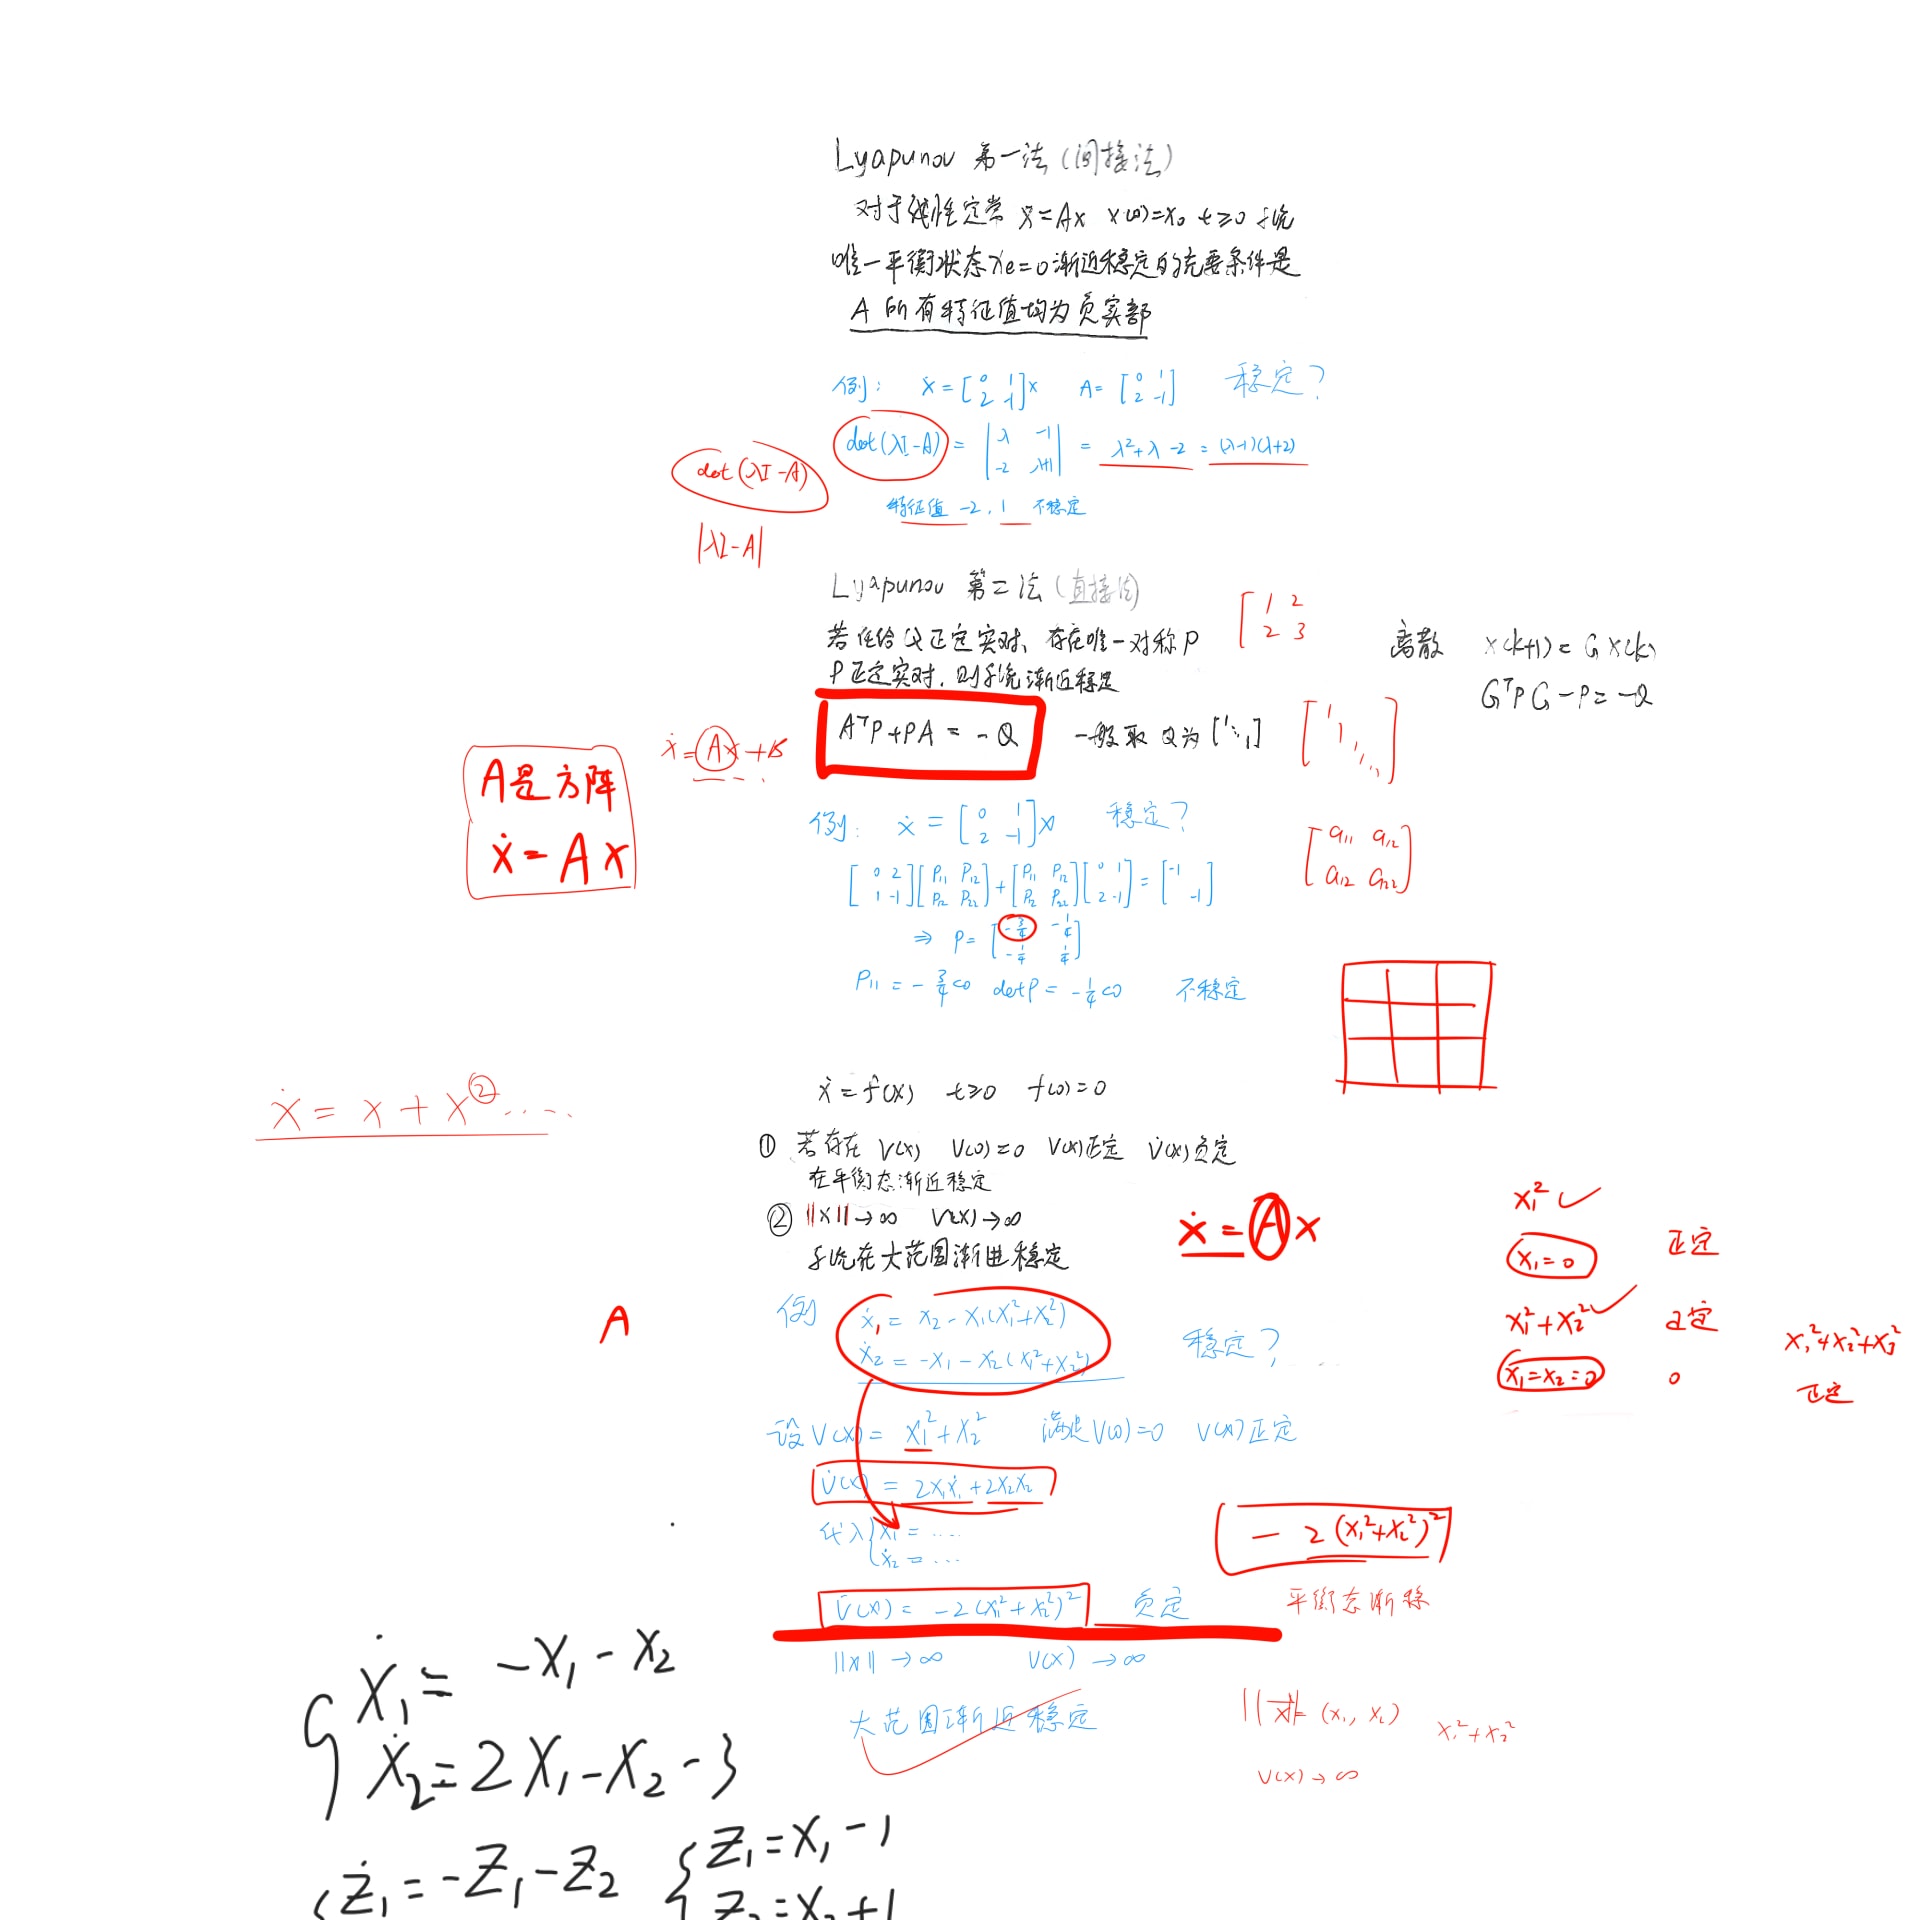 Lyapunov 第一法 (间接法)
对于线性定常 ẋ=Ax x(0)=x₀ t≥0 系统
唯一平衡状态xe=0渐近稳定的充要条件是
A 所有特征值均为负实部
例: ẋ=[0 1; 2 -1]x A=[0 1; 2 -1] 稳定?
det(λI-A) = |λ -1; -2 λ+1| = λ²+λ-2 = (λ-1)(λ+2)
det(λI-A)
特征值 -2, 1 不稳定
|λI-A|
Lyapunov 第二法 (直接法)
[1 2; 2 3]
若任给Q正定实对、存在唯一对称P
P正定实对, 则系统渐近稳定
离散 x(k+1)=Gx(k)
GᵀPG-P=-Q
AᵀP+PA=-Q 一般取Q为[1 ⋱ 1]
[1 1 ⋱]
ẋ=Ax+B
A是方阵
ẋ=Ax
例: ẋ=[0 1; 2 -1]x 稳定?
[0 2; 1 -1][P₁₁ P₁₂; P₁₂ P₂₂]+[P₁₁ P₁₂; P₁₂ P₂₂][0 1; 2 -1]=[-1 ; -1]
[a₁₁ a₁₂; a₁₂ a₂₂]
⇒ P=[-3/4 -1/4; -1/4 1/4]
P₁₁=-3/4<0 detP=-1/4<0 不稳定
ẋ=f(x) t≥0 f(0)=0
ẋ=x+x².....
① 若存在 V(x) V(0)=0 V(x)正定 V̇(x)负定
在平衡态渐近稳定
② ||x||→∞ V(x)→∞
系统在大范围渐进稳定
ẋ=Ax
x₁² ✓
x₁=0 正定
x₁²+x₂² ✓ 正定
x₁=x₂=0 0
x₁²+x₂²+x₃²
正定
A
例 ẋ₁=x₂-x₁(x₁²+x₂²)
ẋ₂=-x₁-x₂(x₁²+x₂²) 稳定?
设V(x)=x₁²+x₂² 满足V(0)=0 V(x)正定
V̇(x)=2x₁ẋ₁+2x₂ẋ₂
代入{ẋ₁=....
ẋ₂=...
-2(x₁²+x₂²)²
平衡态渐稳
V̇(x)=-2(x₁²+x₂²)² 负定
||x||→∞ V(x)→∞
大范围渐近稳定
||x||=(x₁, x₂) x₁²+x₂²
V(x)→∞
{ẋ₁=-x₁-x₂
ẋ₂=2x₁-x₂-3
{ż₁=-z₁-z₂ {z₁=x₁-1
z₂=x₂+1